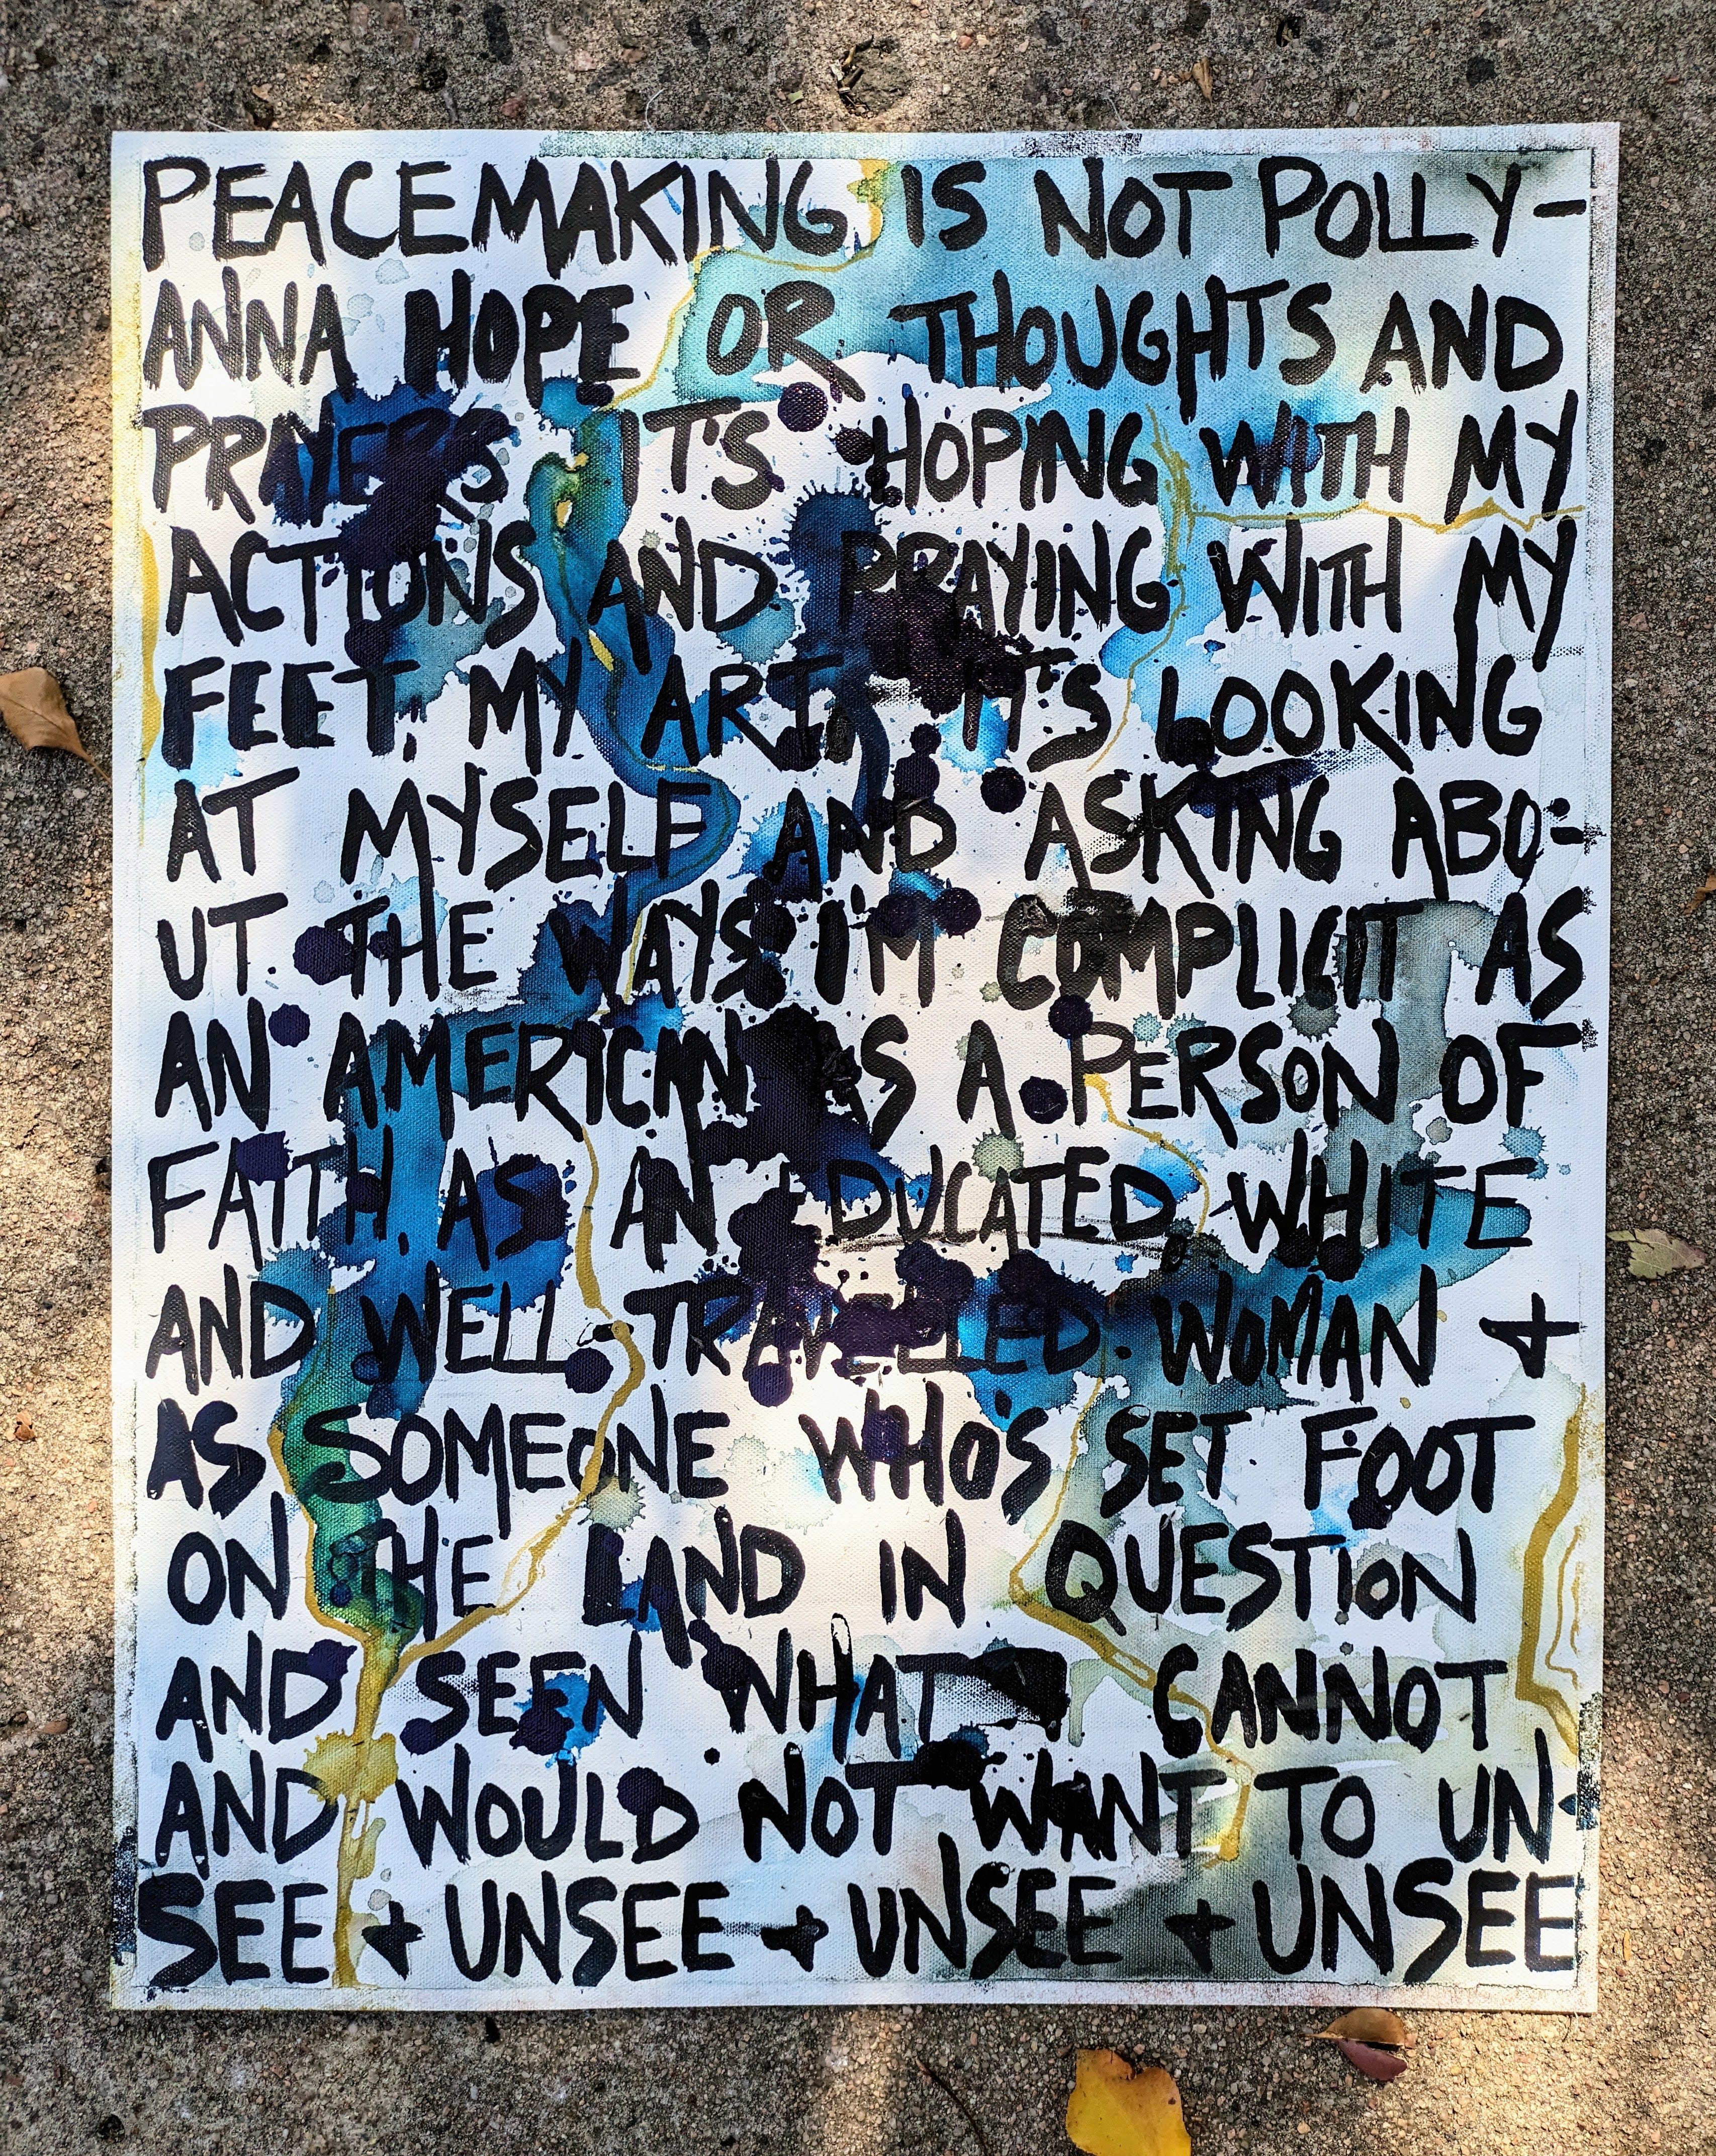 PEACEMAKING IS NOT POLLY-
ANNA HOPE OR THOUGHTS AND
PRAYERS IT'S HOPING WITH MY
ACTIONS AND PRAYING WITH MY
FEET, MY ART, IT'S LOOKING
AT MYSELF AND ASKING ABO-
UT THE WAYS I'M COMPLICIT AS
AN AMERICAN AS A PERSON OF
FAITH, AS AN EDUCATED, WHITE
AND WELL TRAVELLED WOMAN +
AS SOMEONE WHO'S SET FOOT
ON THE LAND IN QUESTION
AND SEEN WHAT I CANNOT
AND WOULD NOT WANT TO UN-
SEE + UNSEE + UNSEE + UNSEE